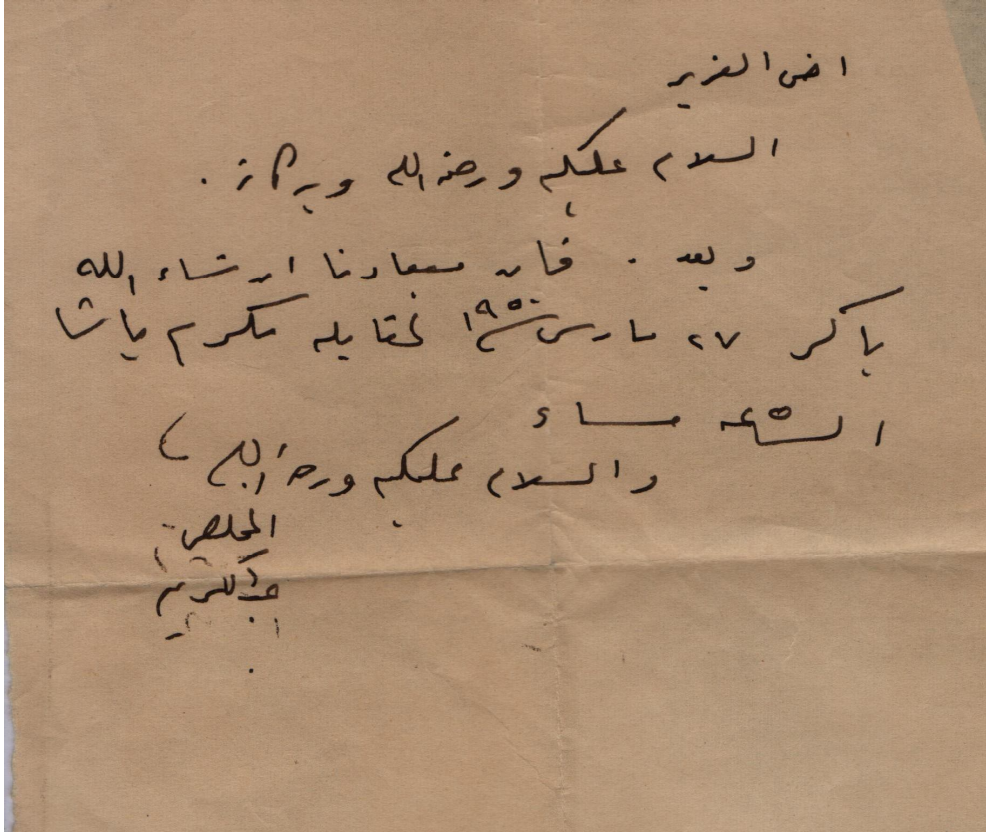 اخى العزيز
السلام عليكم ورحمة الله وبركاته .
وبعد . فان ميعادنا ان شاء الله
باكر ٢٧ مارس ١٩٥٠ لمقابلة مكرم باشا
الساعة ٥ مساء
والسلام عليكم ورحمة الله
المخلص
عبد الكريم